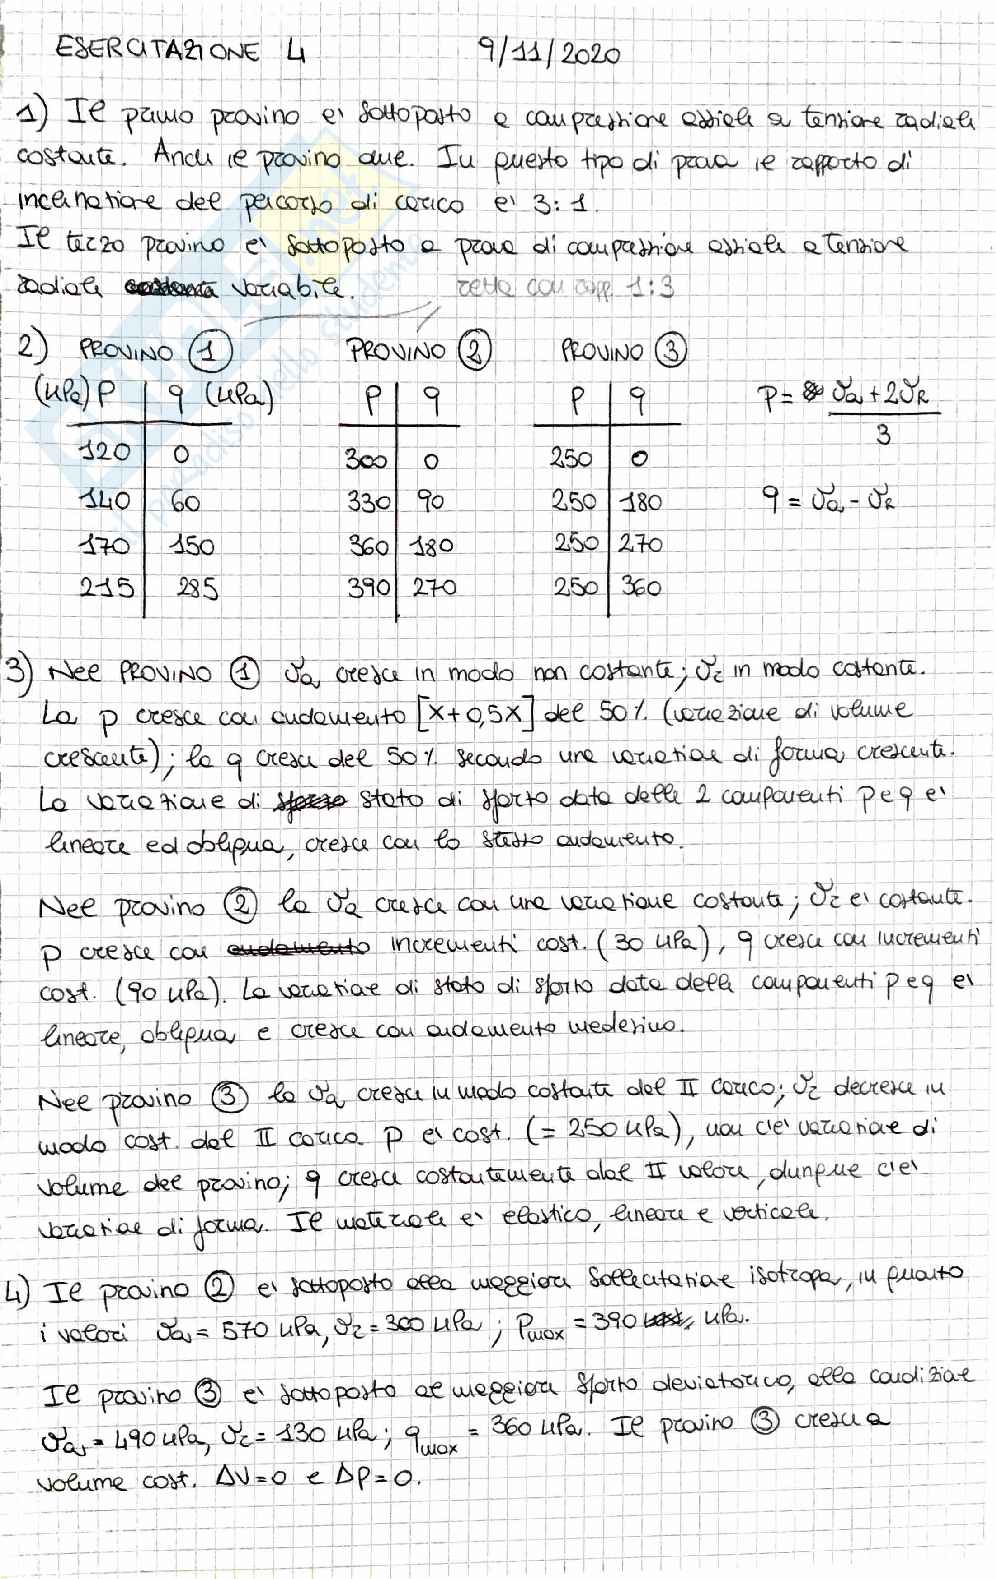 ESERCITAZIONE 4 9/11/2020
1) Il primo provino e' sottoposto a compressione assiale a tensione radiale
costante. Anche il provino due. In questo tipo di prova il rapporto di
inclinazione del percorso di carico e' 3:1.
Il terzo provino e' sottoposto a prova di compressione assiale a tensione
radiale costante variabile. retta con rapp. 1:3
2) PROVINO 1 PROVINO 2 PROVINO 3
(kPa) P q (kPa) P q P q P = σa + 2σR / 3
120 0 300 0 250 0
140 60 330 90 250 180 q = σa - σR
170 150 360 180 250 270
215 285 390 270 250 360
3) Nel PROVINO 1 σa cresce in modo non costante; σr in modo costante.
La p cresce con andamento [x+0,5x] del 50% (variazione di volume
crescente); la q cresce del 50% secondo una variazione di forma crescente.
La variazione di sforzo stato di sforzo data dalle 2 componenti p e q e'
lineare ed obliqua, cresce con lo stesso andamento.
Nel provino 2 la σa cresce con una variazione costante; σr e' costante.
p cresce con andamento incrementi cost. (30 kPa), q cresce con incrementi
cost. (90 kPa). La variazione di stato di sforzo data dalle componenti p e q e'
lineare, obliqua e cresce con andamento medesimo.
Nel provino 3 la σa cresce in modo costante dal II carico; σr decresce in
modo cost. dal II carico p e' cost. (= 250 kPa), non c'e' variazione di
volume del provino; q cresce costantemente dal II valore, dunque c'e'
variazione di forma. Il materiale e' elastico, lineare e verticale.
4) Il provino 2 e' sottoposto alla maggiore sollecitazione isotropa, in quanto
i valori σa = 570 kPa, σr = 300 kPa ; Pmax = 390 kPa.
Il provino 3 e' sottoposto al maggiore sforzo deviatorico, alla condizione
σa = 490 kPa, σr = 130 kPa ; qmax = 360 kPa. Il provino 3 cresce a
volume cost. ΔV=0 e Δp=0.